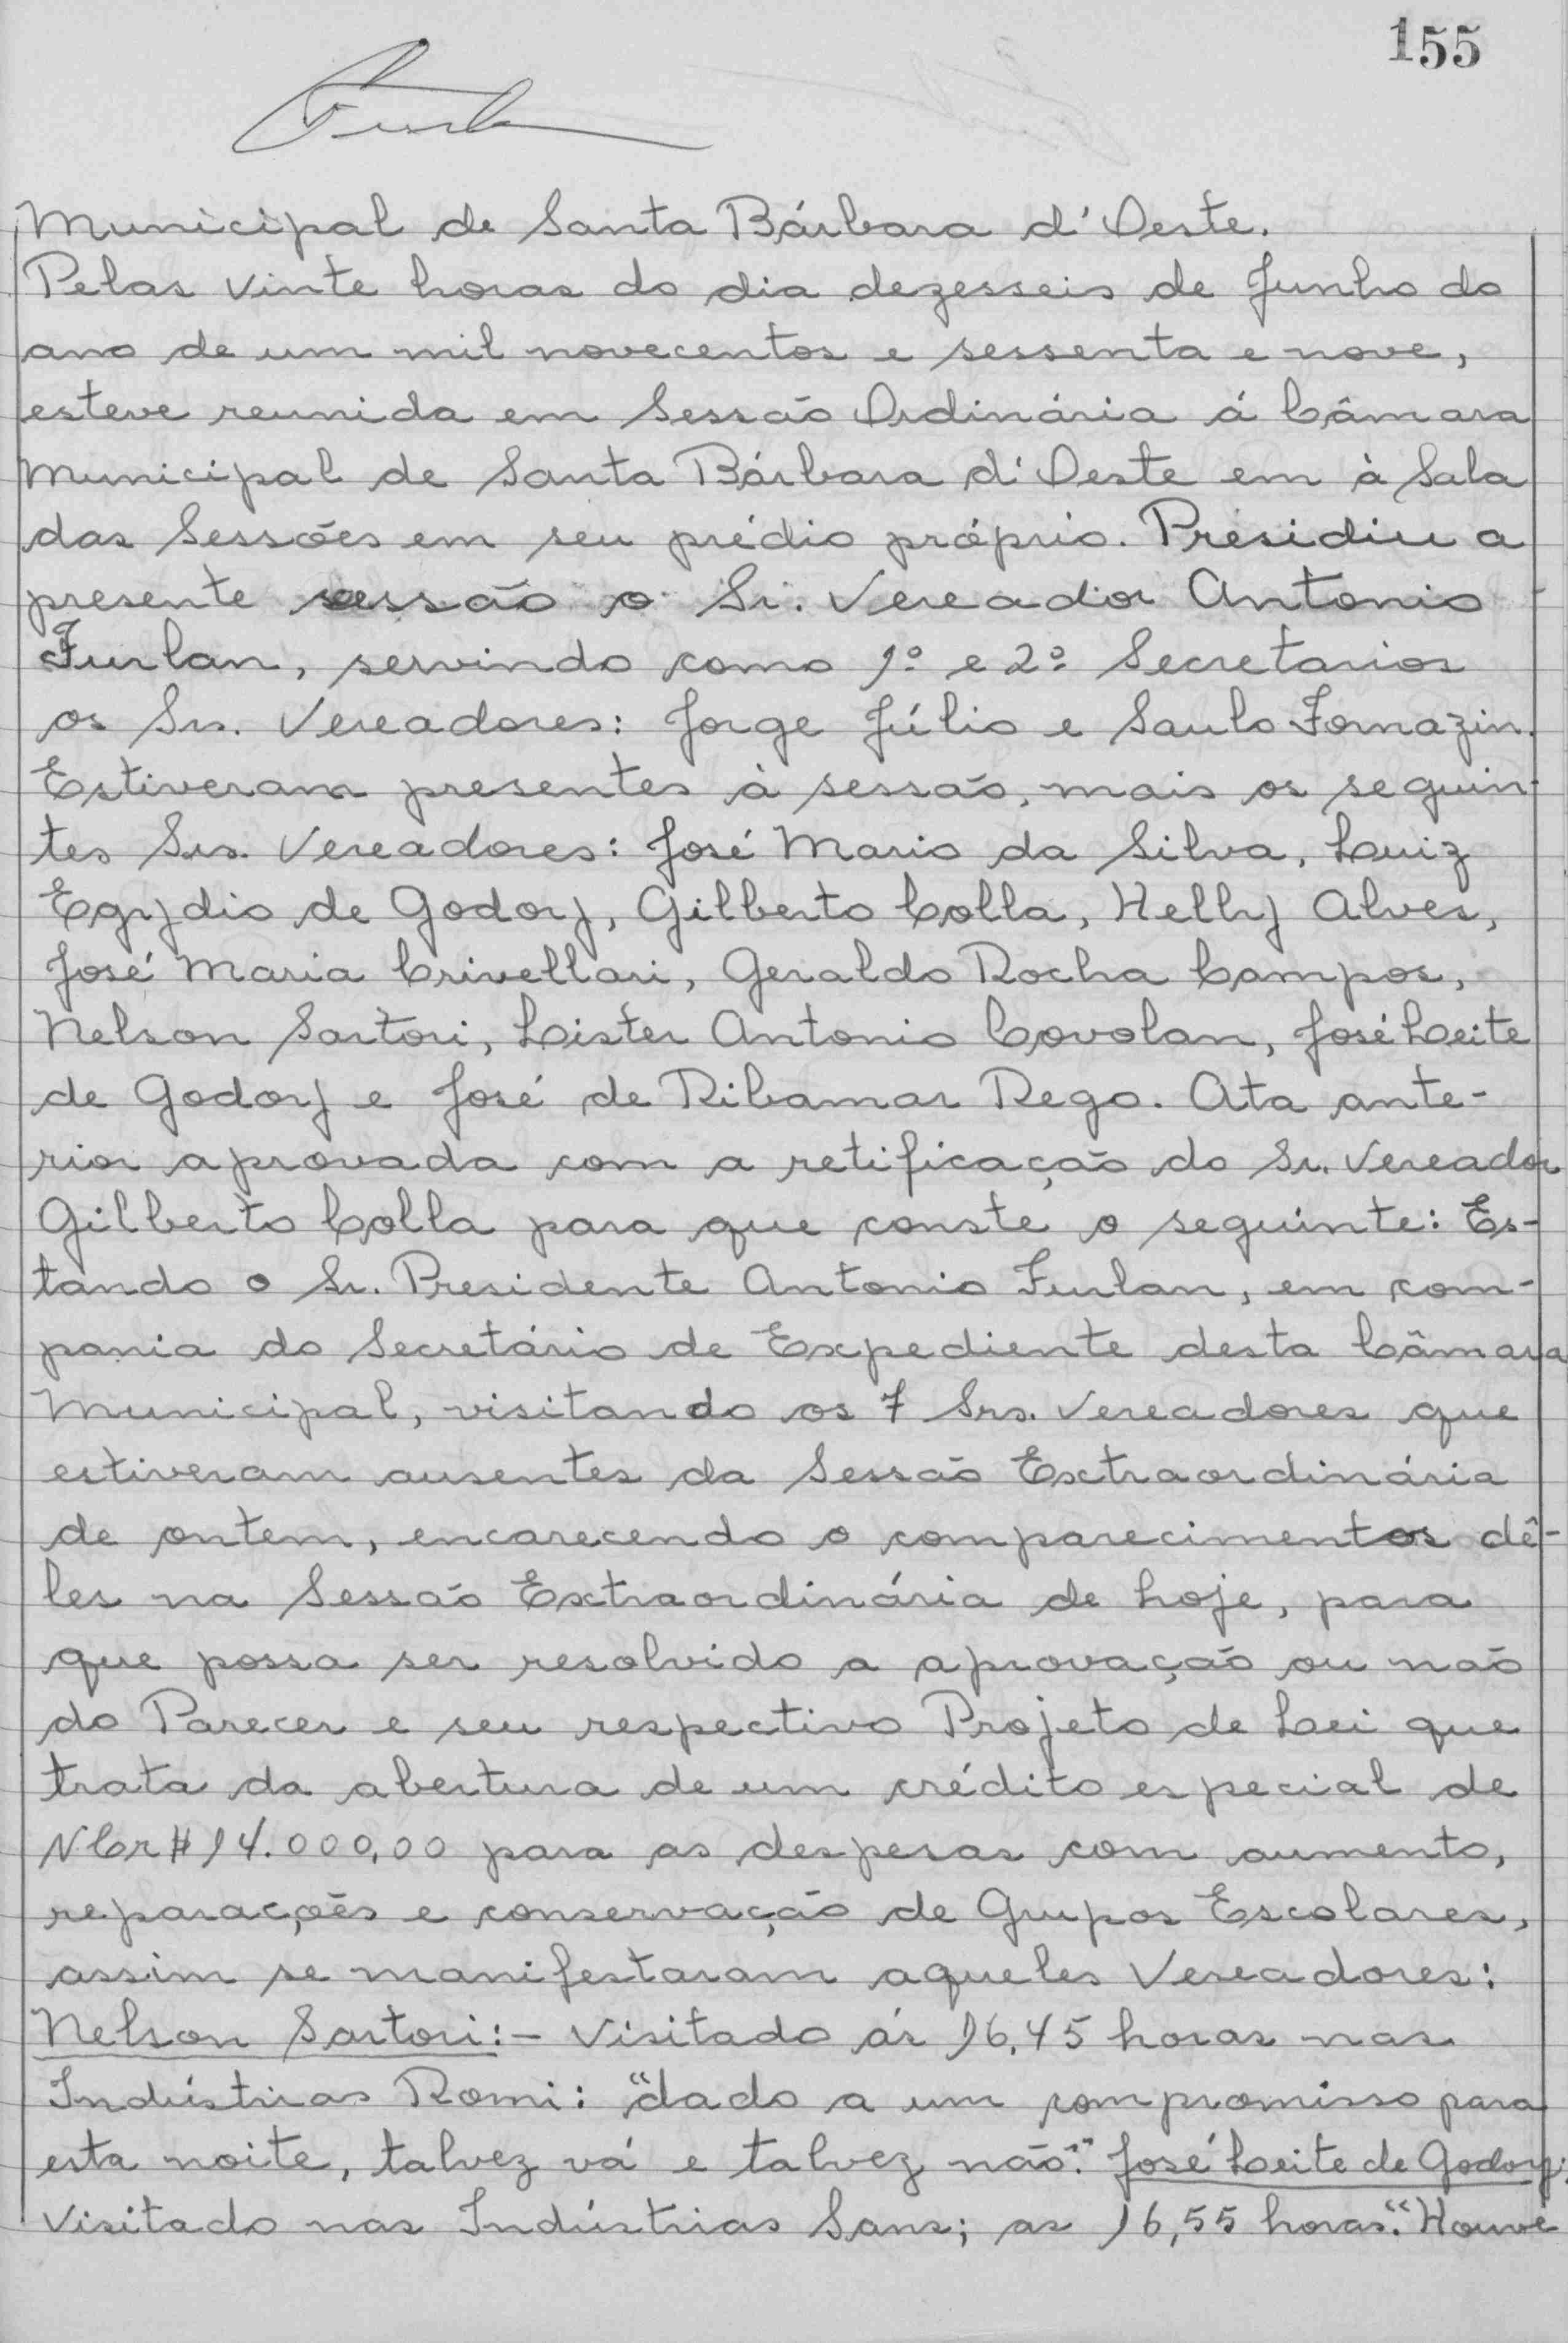 155
Municipal de Santa Bárbara d'Oeste.
Pelas vinte horas do dia dezesseis de Junho do
ano de um mil novecentos e sessenta e nove,
esteve reunida em Sessão Ordinária á Câmara
Municipal de Santa Bárbara d'Oeste em à Sala
das Sessões em seu prédio próprio. Presidiu a
presente sessão o Sr. Vereador Antonio
Furlan, servindo como 1º e 2º Secretarios
os Srs. Vereadores: Jorge Júlio e Saulo Fornazin.
Estiveram presentes à sessão, mais os seguin-
tes Srs. Vereadores: José Mario da Silva, Luiz
Egydio de Godoy, Gilberto Colla, Helly Alves,
José Maria Crivellari, Geraldo Rocha Campos,
Nelson Sartori, Lister Antonio Covolan, José Leite
de Godoy e José de Ribamar Rego. Ata ante-
rior aprovada com a retificação do Sr. Vereador
Gilberto Colla para que conste o seguinte: Es-
tando o Sr. Presidente Antonio Furlan, em com-
pania do Secretário de Expediente desta Câmara
Municipal, visitando os 7 Srs. Vereadores que
estiveram ausentes da Sessão Extraordinária
de ontem, encarecendo o comparecimentos dê-
les na Sessão Extraordinária de hoje, para
que possa ser resolvido a aprovação ou não
do Parecer e seu respectivo Projeto de Lei que
trata da abertura de um crédito especial de
NCr# 14.000,00 para as despesas com aumento,
reparações e conservação de Grupos Escolares,
assim se manifestaram aqueles Vereadores:
Nelson Sartori:- Visitado ás 16,45 horas nas
Indústrias Romi: "dado a um compromisso para
esta noite, talvez vá e talvez não". José Leite de Godoy:
Visitado nas Indústrias Sans; as 16,55 horas. "Houve